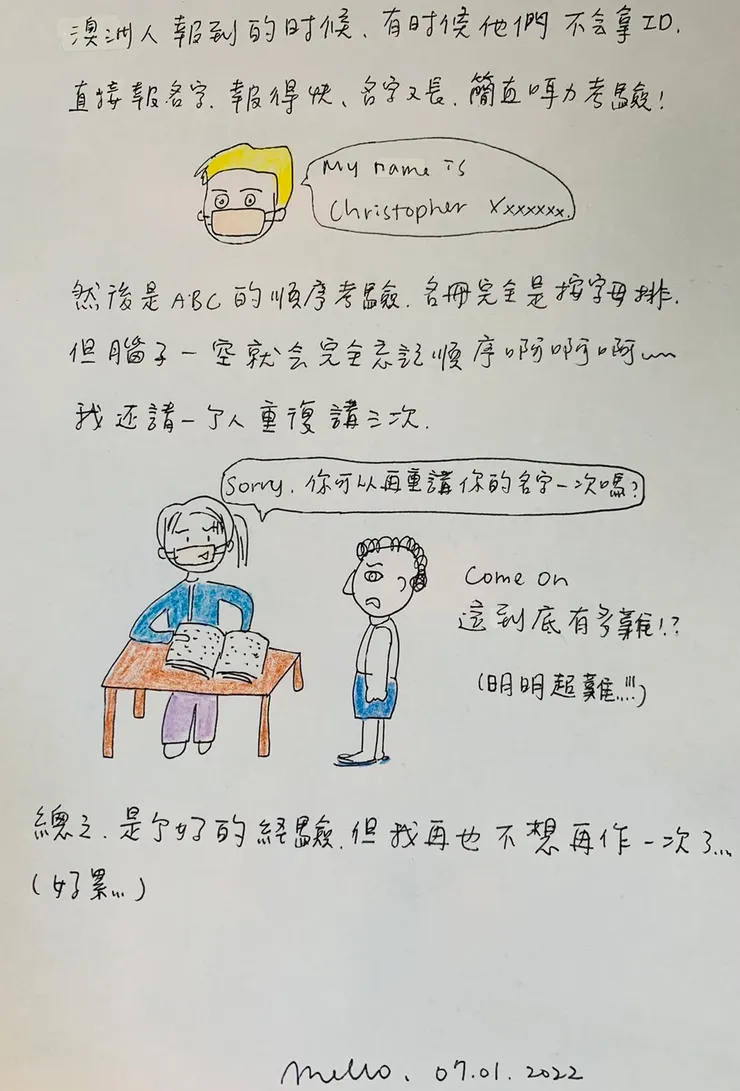 澳洲人報到的时候、有时候他們不会拿ID.
直接報名字. 報得快、名字又長. 簡直听力考驗!
My name is
Christopher Xxxxxxx.
然後是ABC的順序考驗. 名冊完全是按字母排.
但腦子一空就会完全忘記順序啊啊啊~~
我还請一个人重復講三次.
Sorry. 你可以再重講你的名字一次嗎?
Come on
這到底有多難!?
(明明超難!!!)
總之. 是个好的経驗. 但我再也不想再作一次了...
(好累...)
Mello. 07.01.2022